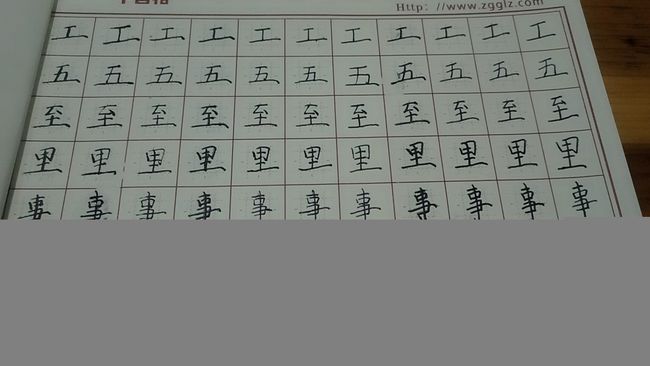 Http: //www.zgglz.com
工 工 工 工 工 工 工 工 工 工 工
五 五 五 五 五 五 五 五 五 五 五
至 至 至 至 至 至 至 至 至 至 至
里 里 里 里 里 里 里 里 里 里 里
事 事 事 事 事 事 事 事 事 事 事